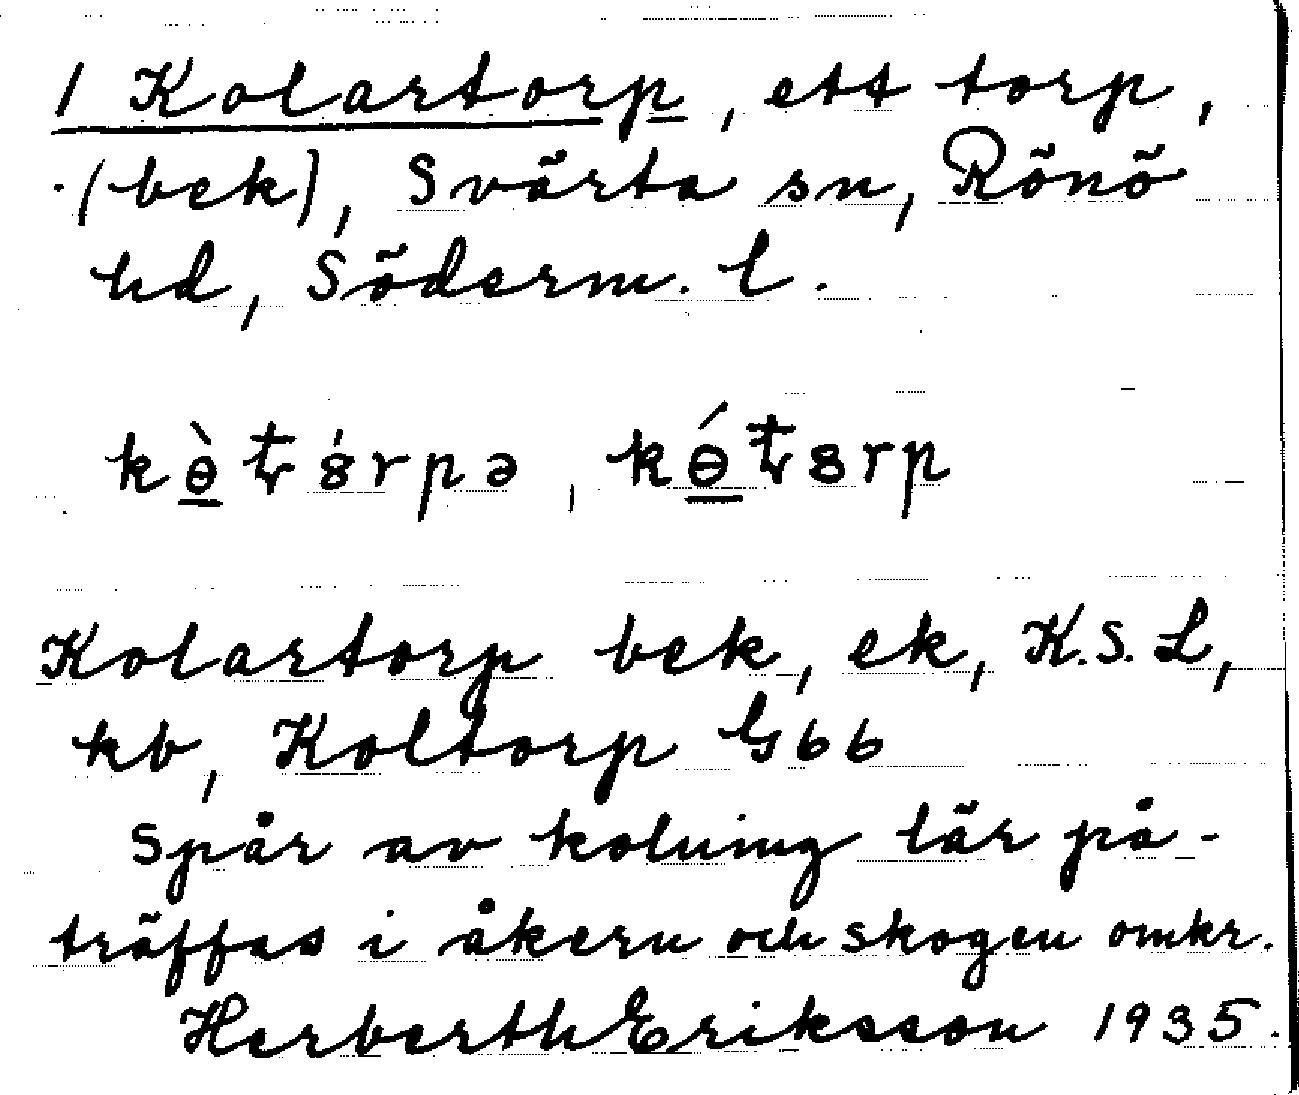 1 Kolartorp, ett torp,
(bek), Svärta sn, Rönö
hd, Söderm. l.
kɵ̀łȣ́rpə, kɵ́łȣrp
Kolartorp bek, ek, K.S.L,
kb, Koltorp G66
Spår av kolning lär på-
träffas i åkern och skogen omkr.
Herberth Eriksson 1935.